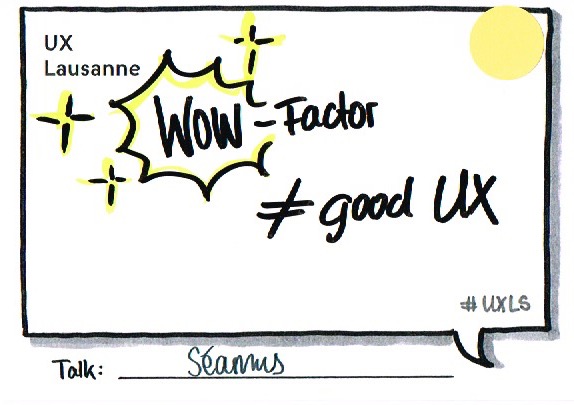 UX
Lausanne
Wow-Factor
≠ good UX
# UXLS
Talk: Séamus